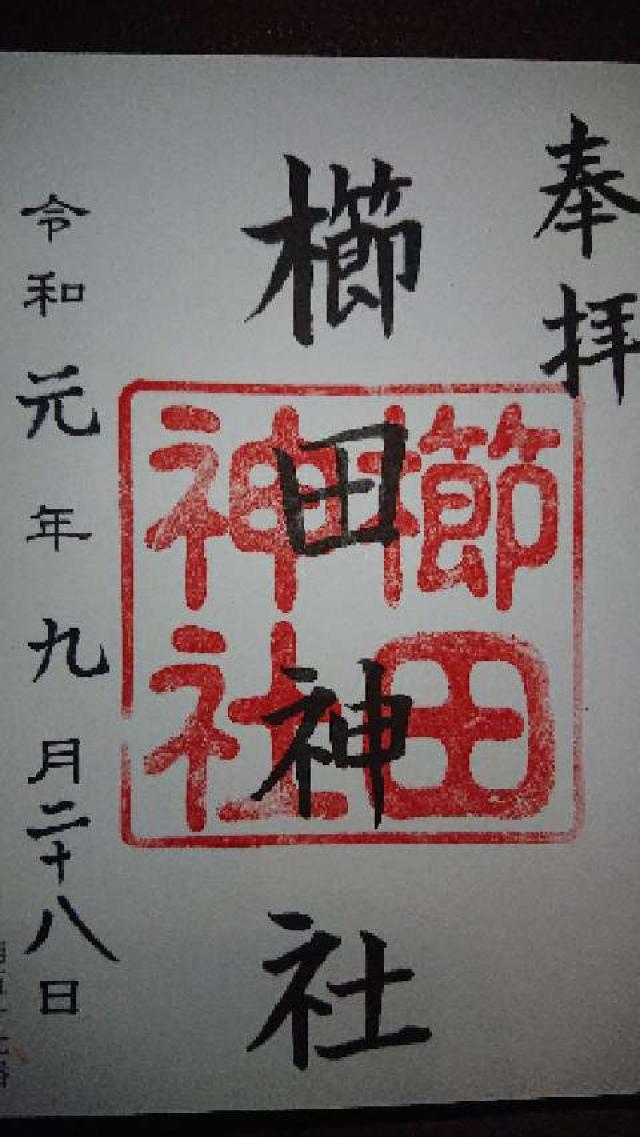 奉拝
櫛田神社
櫛田
神社
令和元年九月二十八日